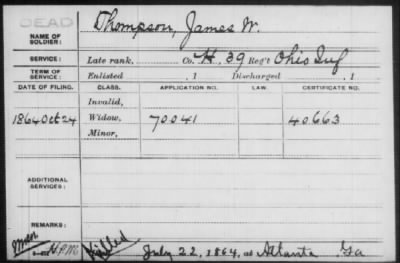 DEAD
NAME OF SOLDIER: Thompson, James W.
SERVICE: Late rank, Co. H, 39 Reg't Ohio Inf
TERM OF SERVICE: Enlisted , 1 Discharged , 1
DATE OF FILING. CLASS. APPLICATION NO. LAW. CERTIFICATE NO.
Invalid,
1864 Oct 24 Widow, 70041 40663
Minor,
ADDITIONAL SERVICES:
REMARKS:
Killed July 22, 1864, at Atlanta Ga